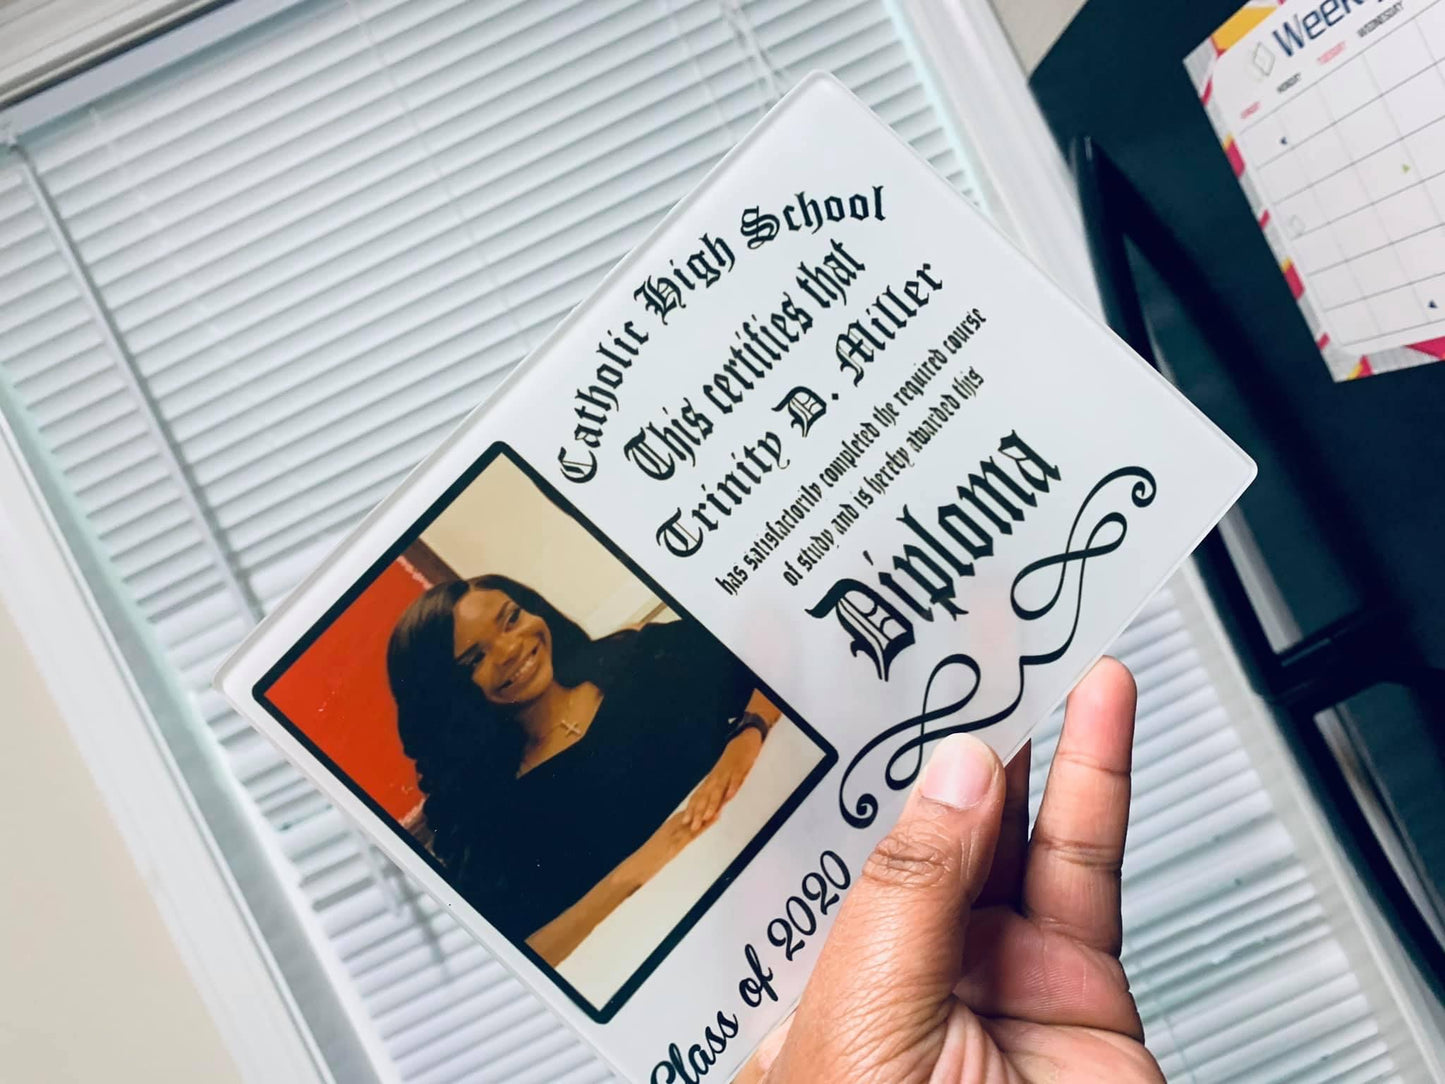 Catholic High School
This certifies that
Trinity D. Miller
has satisfactorily completed the required course
of study and is hereby awarded this
Diploma
Class of 2020
SUNDAY MONDAY TUESDAY WEDNESDAY